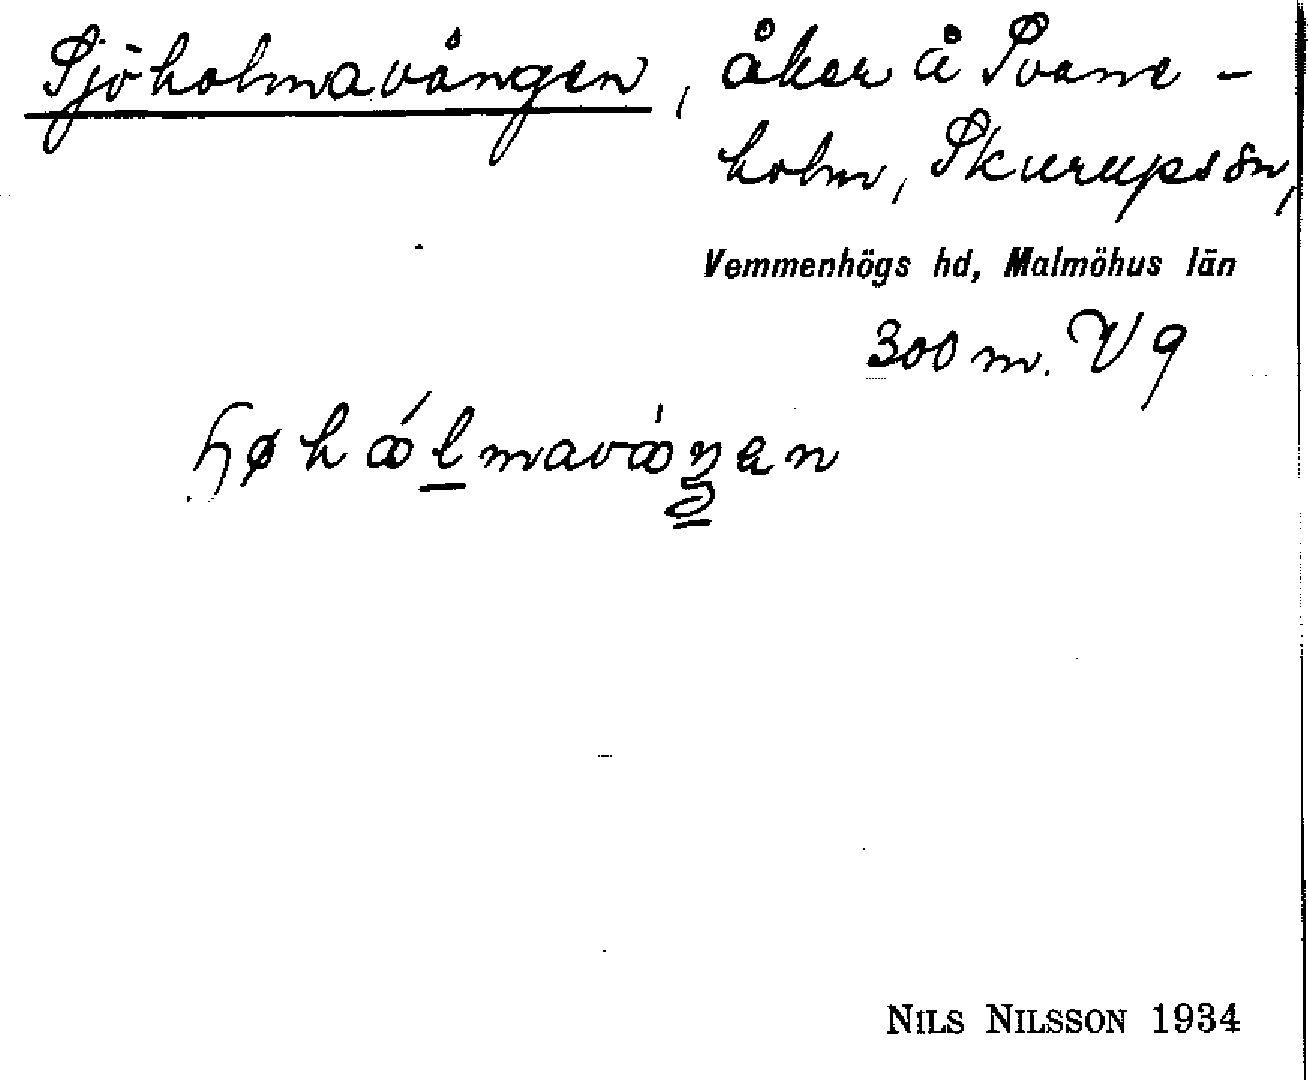 Sjöholmavången, åker å Svane-
holm, Skurupssn,
Vemmenhögs hd, Malmöhus län
300 m. V 9
ɧøhålmavåŋen
NILS NILSSON 1934